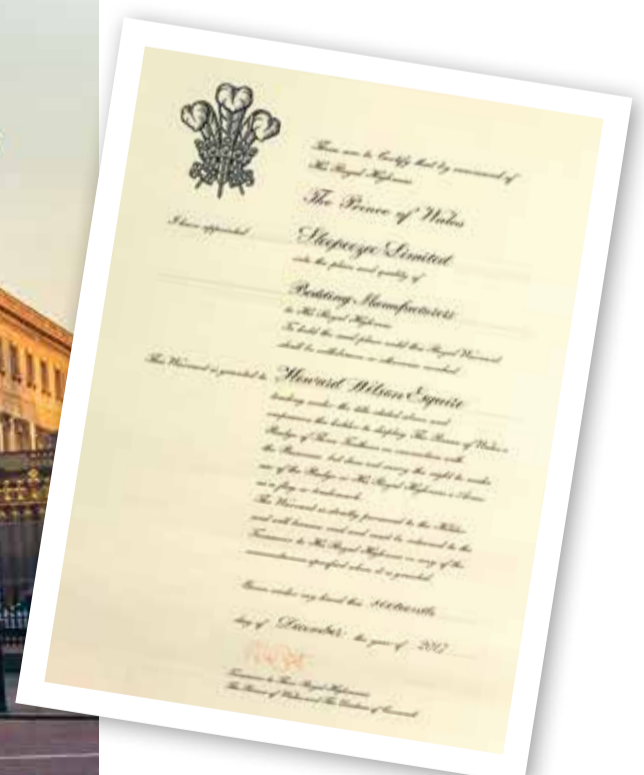 These are to Certify that by command of
His Royal Highness
The Prince of Wales
I have appointed Sleepeezee Limited
into the place and quality of
Bedding Manufacturers
to His Royal Highness
To hold the said place until this Royal Warrant
shall be withdrawn or otherwise revoked.
This Warrant is granted to Howard Wilson Esquire
trading under the title stated above and
empowers the holder to display The Prince of Wales's
Badge of Three Feathers in connection with
the Business but does not carry the right to make
use of the Badge or His Royal Highness's Arms
as a flag or trademark.
The Warrant is strictly personal to the Holder
and will become void and must be returned to the
Treasurer to His Royal Highness in any of the
circumstances specified when it is granted.
Given under my hand this sixteenth
day of December the year of 2017
Treasurer to Their Royal Highnesses
The Prince of Wales and The Duchess of Cornwall